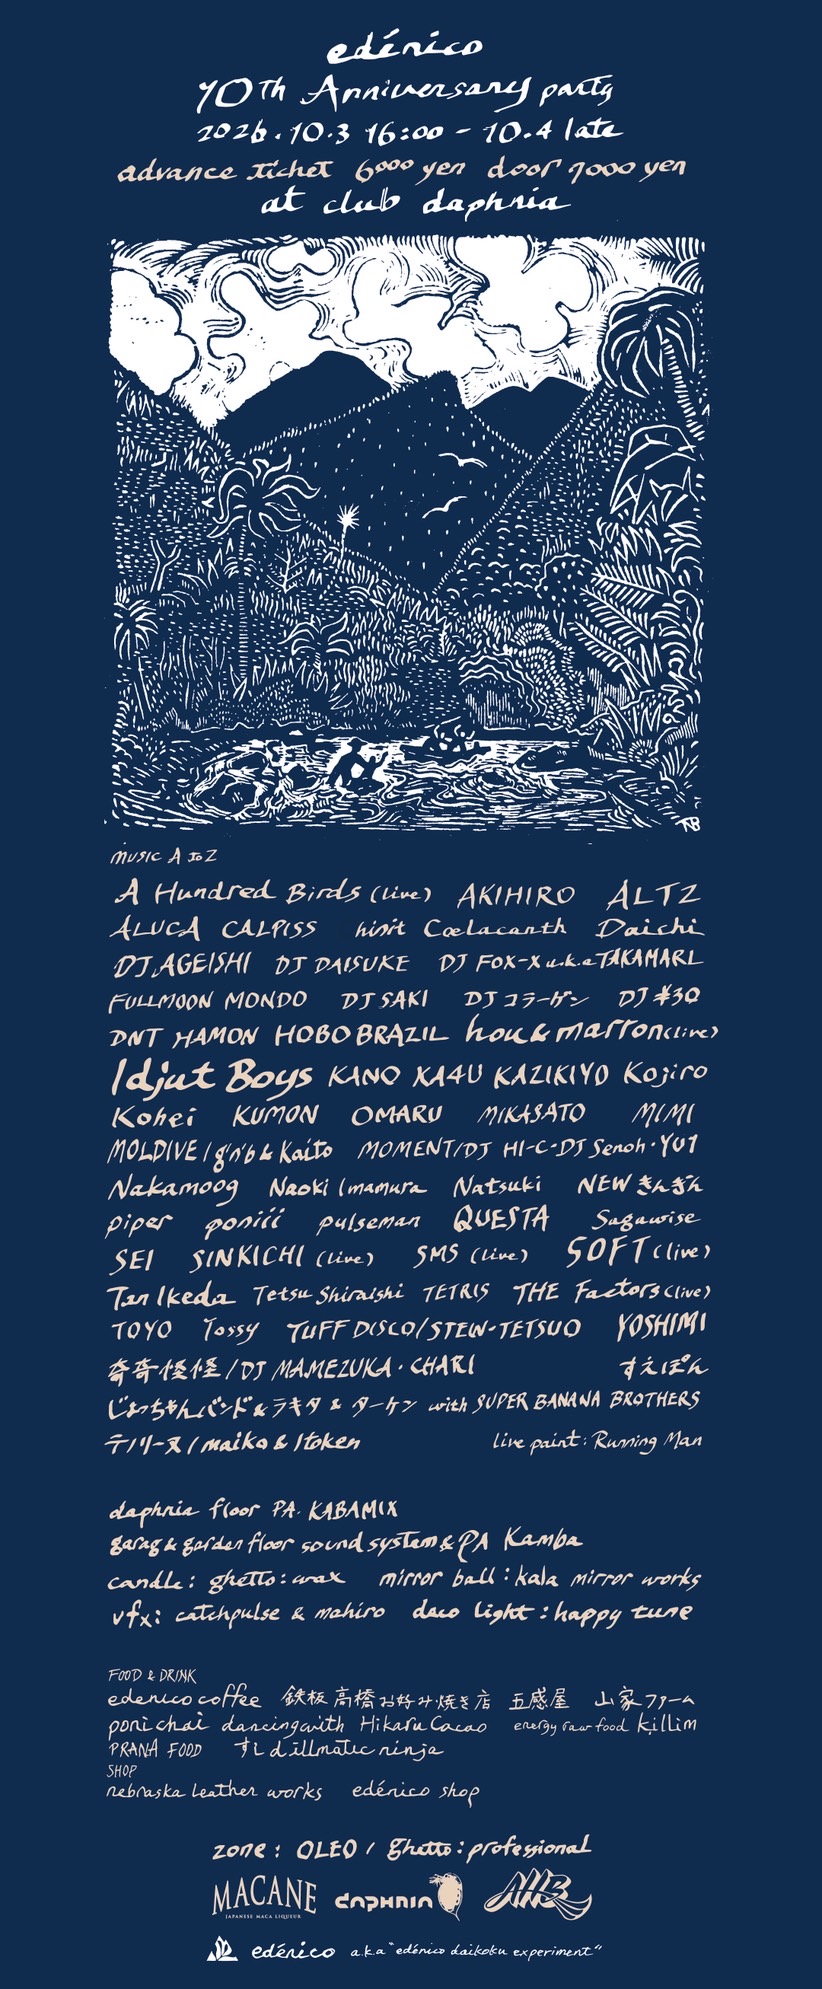 edénico
10th Anniversary party
2026.10.3 16:00 - 10.4 late
advance ticket 6000 yen door 7000 yen
at club daphnia
music A to Z
A Hundred Birds (live) AKIHIRO ALTZ
ALUCA CALPISS Coelacanth Daichi
DJ AGEISHI DJ DAISUKE DJ FOX-X a.k.a TAKAMARL
FULLMOON MONDO DJ SAKI DJ コラーゲン DJ ¥30
DNT HAMON HOBO BRAZIL hou & marron (live)
Idjut Boys KANO KA4U KAZIKIYO Kojiro
Kohei KUMON OMARU MIKASATO MIMI
MOLDIVE / g'n'b & Kaito MOMENT/DJ HI-C・DJ Senoh・YU1
Nakamoog Naoki Imamura Natsuki NEW きんぎん
piper poniii pulseman QUESTA Sagawise
SEI SINKICHI (live) SMS (live) SOFT (live)
Tan Ikeda Tetsu Shiraishi TETRIS THE Factors (live)
TOYO Tossy TUFF DISCO/STEW・TETSUO YOSHIMI
奇奇怪怪/DJ MAMEZUKA・CHARI すえぽん
じぃちゃんバンド & ラキタ & ターケン with SUPER BANANA BROTHERS
テリーヌ / maiko & Itoken live paint: Running Man
daphnia floor PA. KABAMIX
garag & garden floor sound system & PA Kamba
candle: ghetto:wax mirror ball: kala mirror works
vfx: catchpulse & mahiro deco light: happy tune
FOOD & DRINK
edenico coffee 鉄板 高橋お好み焼き店 五感屋 山家ファーム
poni chai dancing with Hikaru Cacao energy raw food killim
PRANA FOOD すし dillmatic ninja
SHOP
nebraska leather works edénico shop
zone: OLEO / ghetto:professional
MACANE DAPHNIA AHB
JAPANESE MACA LIQUEUR
edénico a.k.a "edénico daikoku experiment"